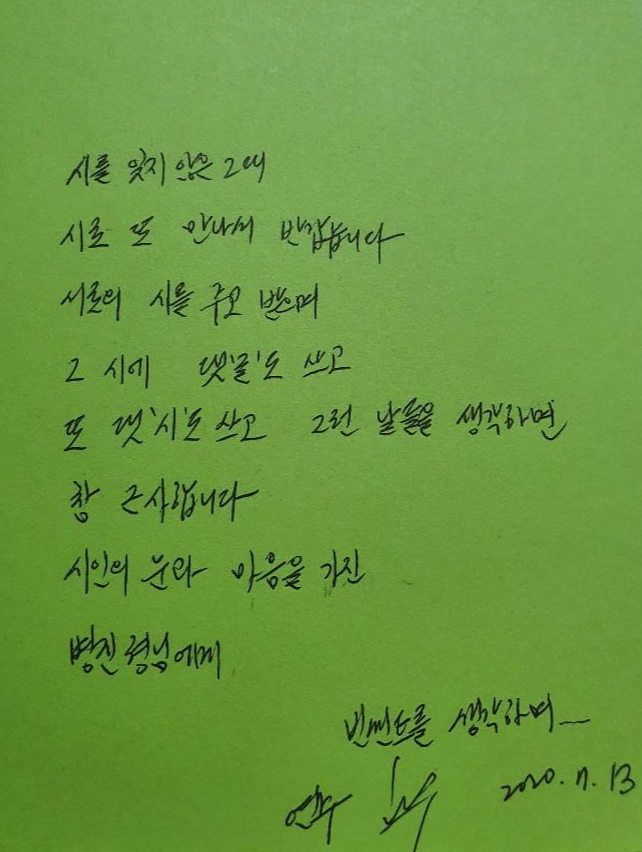 시를 잊지 않은 그대
시로 또 만나서 반갑습니다
서로의 시를 주고 받으며
그 시에 댓'글'도 쓰고
또 댓'시'도 쓰고 그런 날들을 생각하면
참 근사합니다
시인의 눈과 마음을 가진
병진형님에게
빈센트를 생각하며
연수
2020. 11. 13